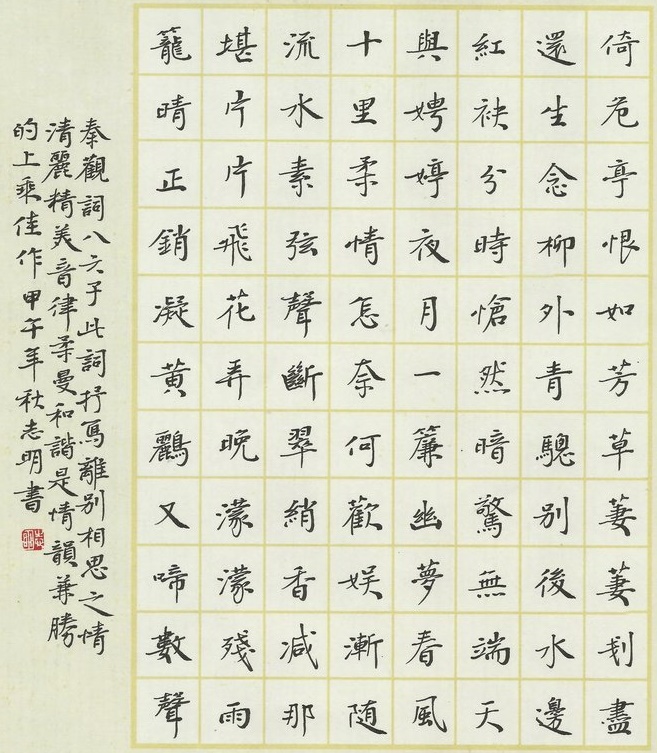 倚危亭恨如芳草萋萋刬盡
還生念柳外青驄別後水邊
紅袂分時愴然暗驚無端天
與娉婷夜月一簾幽夢春風
十里柔情怎奈何歡娱漸隨
流水素弦聲斷翠綃香減那
堪片片飛花弄晚濛濛殘雨
籠晴正銷凝黄鸝又啼數聲
秦觀詞八六子此詞抒寫離别相思之情
清麗精美音律柔曼和諧是情韻兼勝
的上乘佳作甲午年秋志明書
志明